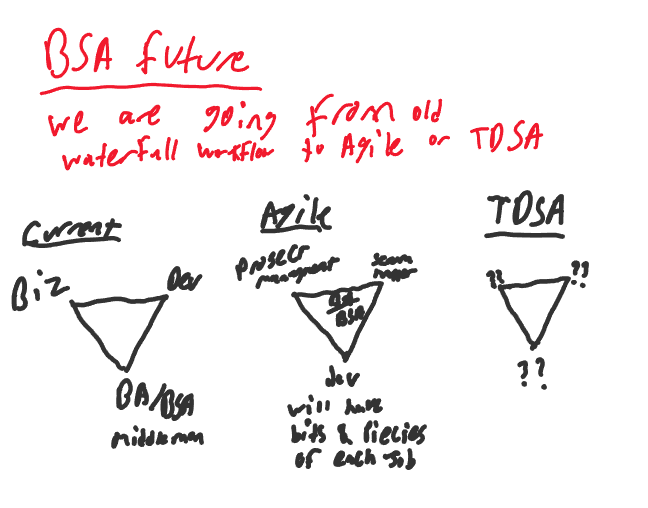 BSA future
we are going from old
waterfall workflow to Agile or TDSA
Current
Biz
Dev
BA/BSA
middleman
Agile
Project
managment
scrum
master
BA/
BSA
dev
will have
bits & piecies
of each job
TDSA
??
??
??